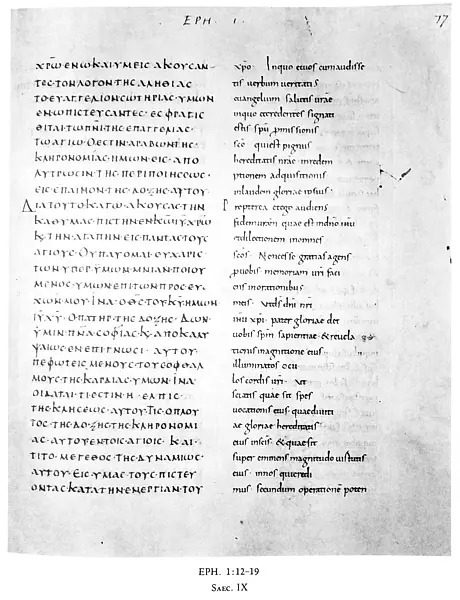 EPH. I.
77
ΧΡΩ·ΕΝΩ·ΚΑΙ·ΥΜΕΙϹ·ΑΚΟΥϹΑΝ-
ΤΕϹ·ΤΟΝ·ΛΟΓΟΝ·ΤΗϹ·ΑΛΗΘΙΑϹ
ΤΟ·ΕΥΑΓΓΕΛΙΟΝ·ϹΩΤΗΡΙΑϹ·ΥΜΩΝ
ΕΝΩ·ΠΙϹΤΕΥϹΑΝΤΕϹ·ΕϹΦΡΑΓΙϹ
ΘΙΤΑΙ·ΤΩ·ΠΝΙ·ΤΗϹ·ΕΠΑΓΓΕΛΙΑϹ·
ΤΩ·ΑΓΙΩ·Ο·ΕϹΤΙΝ·ΑΡΑΒΩΝ·ΤΗϹ·
ΚΛΗΡΟΝΟΜΙΑϹ·ΗΜΩΝ·ΕΙϹ·ΑΠΟ
ΛΥΤΡΩϹΙΝ·ΤΗϹ·ΠΕΡΙΠΟΙΗϹΕΩϹ·
ΕΙϹ·ΕΠΑΙΝΟΝ·ΤΗϹ·ΔΟΞΗϹ·ΑΥΤΟΥ
ΔΙΑ·ΤΟΥΤΟ·ΚΑΓΩ·ΑΚΟΥϹΑϹ·ΤΗΝ
ΚΑΘ·ΥΜΑϹ·ΠΙϹΤΗΝ·ΕΝ·ΚΩ·ΙΥ·ΧΡΩ
Κ·ΤΗΝ·ΑΓΑΠΗΝ·ΕΙϹ·ΠΑΝΤΑϹ·ΤΟΥϹ
ΑΓΙΟΥϹ·ΟΥ·ΠΑΥΟΜΑΙ·ΕΥΧΑΡΙϹ
ΤΩΝ·ΥΠΕΡ·ΥΜΩΝ·ΜΝΙΑΝ·ΠΟΙΟΥ
ΜΕΝΟϹ·ΥΜΩΝ·ΕΠΙ·ΤΩΝ·ΠΡΟϹΕΥ·
ΧΩΝ·ΜΟΥ·ΙΝΑ·Ο·ΘϹ·ΤΟΥ·ΚΥ·ΗΜΩΝ
ΙΥ·ΧΥ·Ο·ΠΑΤΗΡ·ΤΗϹ·ΔΟΞΗϹ·ΔΩΝ·
ΥΜΙΝ·ΠΝΑ·ϹΟΦΙΑϹ·Κ·ΑΠΟΚΑΛΥ
ΨΑΙΩϹ·ΕΝ·ΕΠΙΓΝΩϹΙ·ΑΥΤΟΥ·
ΠΕΦΩΤΕΙϹΜΕΝΟΥϹ·ΤΟΥϹ·ΟΦΘΑΛ
ΜΟΥϹ·ΤΗϹ·ΚΑΡΔΙΑϹ·ΥΜΩΝ·ΙΝΑ·
ΟΙΔΑΤΑΙ·ΤΙ·ΕϹΤΙΝ·Η·ΕΛΠΙϹ·
ΤΗϹ·ΚΛΗϹΕΩϹ·ΑΥΤΟΥ·ΤΙϹ·Ο·ΠΛΟΥ
ΤΟϹ·ΤΗϹ·ΔΟΞΗϹ·ΤΗϹ·ΚΛΗΡΟΝΟΜΙ
ΑϹ·ΑΥΤΟΥ·ΕΝ·ΤΟΙϹ·ΑΓΙΟΙϹ·ΚΑΙ·
ΤΙ·ΤΟ·ΜΕΓΕΘΟϹ·ΤΗϹ·ΔΥΝΑΜΙΩϹ·
ΑΥΤΟΥ·ΕΙϹ·ΥΜΑϹ·ΤΟΥϹ·ΠΙϹΤΕΥ
ΟΝΤΑϹ·ΚΑΤΑ·ΤΗΝ·ΕΝΕΡΓΙΑΝ·ΤΟΥ
xpo· In quo et uos cum audisse
tis uerbum ueritatis
euangelium salutis urae
in quo et credentes signati
estis spu promissionis
sco qui est pignus
hereditatis nrae in redem
ptionem adquisitionis
in laudem gloriae ipsius
Propterea et ego audiens
fidem uram quae est in dno ihu
et dilectionem in omnes
scos· Non cesso gratias agens
pro uobis memoriam uri faci
ens in orationibus
meis· Ut ds dni nri
ihu xpi· pater gloriae det
uobis spm sapientiae & reuela
tionis in agnitione eius
illuminatos ocu
los cordis uri· Ut
sciatis quae sit spes
uocationis eius quae diuiti
ae gloriae hereditatis
eius in scis· & quae sit
super eminens magnitudo uirtutis
eius· in nos qui credi
mus secundum operatione poten
EPH. 1:12-19
SAEC. IX